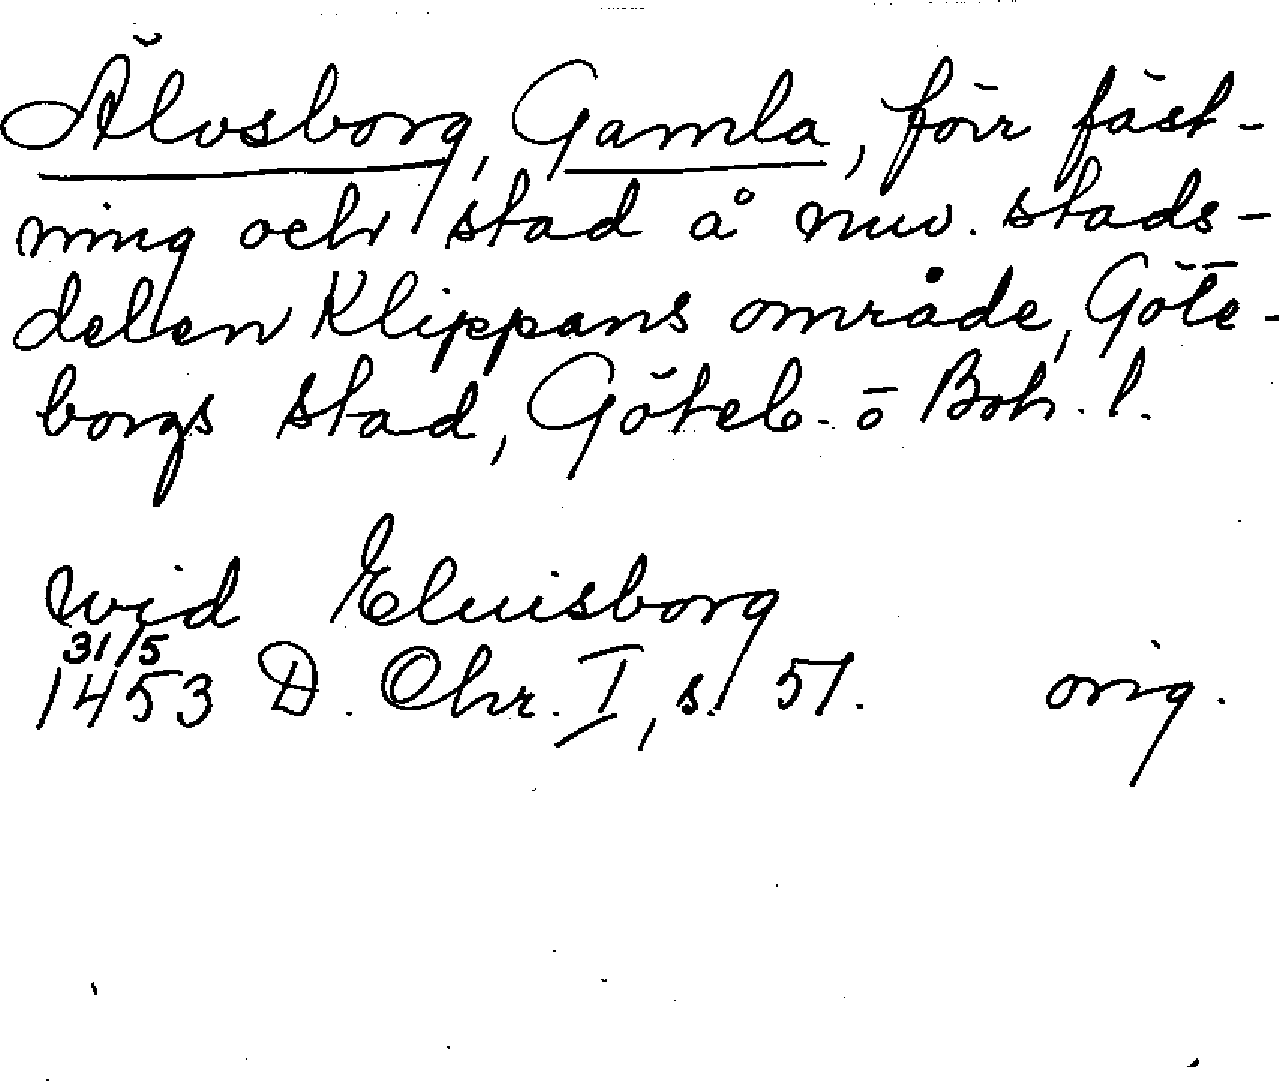 Älvsborg, Gamla, förr fäst-
ning och stad å nuv. stads-
delen Klippans område, Göte-
borgs stad, Göteb. o Boh. l.
wid Eluisborg
31/5
1453 D. Chr. I, s. 51. orig.